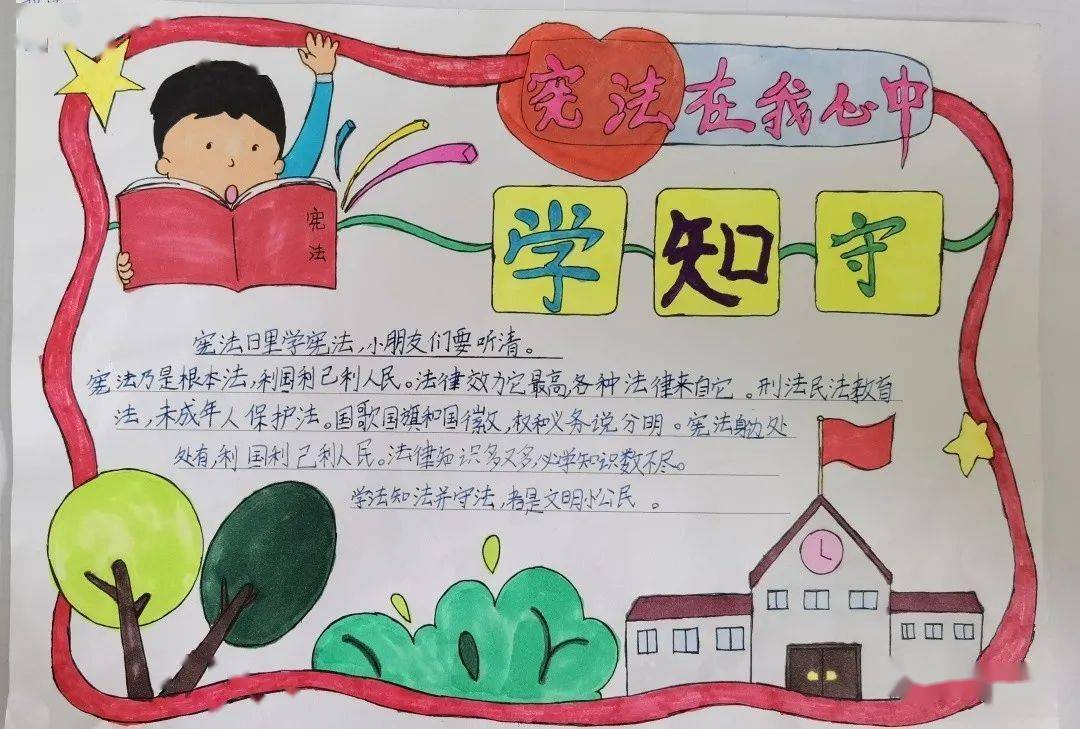 宪法在我心中
宪法
学 知 守
宪法日里学宪法,小朋友们要听清。
宪法乃是根本法,利国利己利人民。法律效力它最高,各种法律来自它。刑法民法教育
法,未成年人保护法。国歌国旗和国徽,权和义务说分明。宪法身边处
处有,利国利己利人民。法律知识多又多,必学知识数不尽。
学法知法并守法,都是文明小公民。